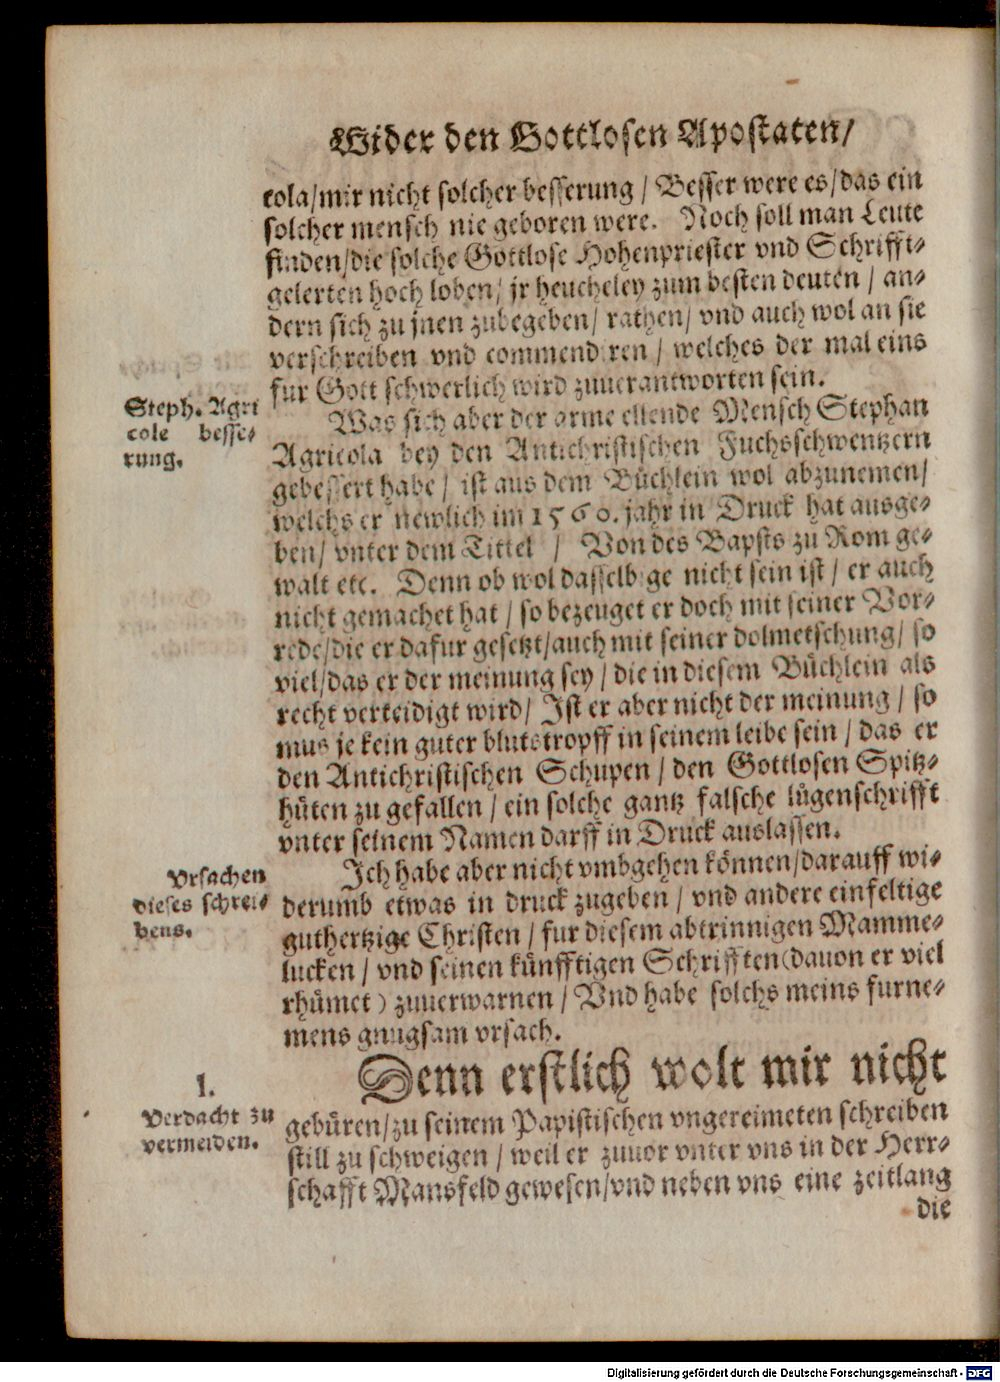 Wider den Gottlosen Apostaten/
cola/mir nicht solcher besserung / Besser were es/das ein
solcher mensch nie geboren were. Noch soll man Leute
finden/die solche Gottlose Hohenpriester vnd Schrifft-
gelerten hoch loben/ jr heucheley zum besten deuten / an-
dern sich zu jnen zubegeben/ rathen/ vnd auch wol an sie
verschreiben vnd commendiren / welches der mal eins
fur Gott schwerlich wird zuuerantworten sein.
Steph. Agri
cole besse-
rung.
Was sich aber der arme ellende Mensch Stephan
Agricola bey den Antichristischen Fuchsschwentzern
gebessert habe / ist aus dem Büchlein wol abzunemen/
welchs er newlich im 1560. jahr in Druck hat ausge-
ben/ vnter dem Tittel / Von des Bapsts zu Rom ge-
walt etc. Denn ob wol dasselbige nicht sein ist / er auch
nicht gemachet hat / so bezeuget er doch mit seiner Vor-
rede/die er dafur gesetzt/auch mit seiner dolmetschung/ so
viel/das er der meinung sey / die in diesem Büchlein als
recht verteidigt wird/ Ist er aber nicht der meinung / so
mus je kein guter blutstropff in seinem leibe sein / das er
den Antichristischen Schupen / den Gottlosen Spitz-
hüten zu gefallen / ein solche gantz falsche lügenschrifft
vnter seinem Namen darff in Druck auslassen.
Vrsachen
dieses schrei-
bens.
Ich habe aber nicht vmbgehen können/darauff wi-
derumb etwas in druck zugeben / vnd andere einfeltige
guthertzige Christen / fur diesem abtrinnigen Mamme-
lucken / vnd seinen künfftigen Schrifften (dauon er viel
rhümet) zuuerwarnen / Vnd habe solchs meins furne-
mens gnugsam vrsach.
1.
Verdacht zu
vermeiden.
Denn erstlich wolt mir nicht
gebüren/zu seinem Papistischen vngereimeten schreiben
still zu schweigen / weil er zuuor vnter vns in der Herr-
schafft Mansfeld gewesen/vnd neben vns eine zeitlang
die
Digitalisierung gefördert durch die Deutsche Forschungsgemeinschaft - DFG